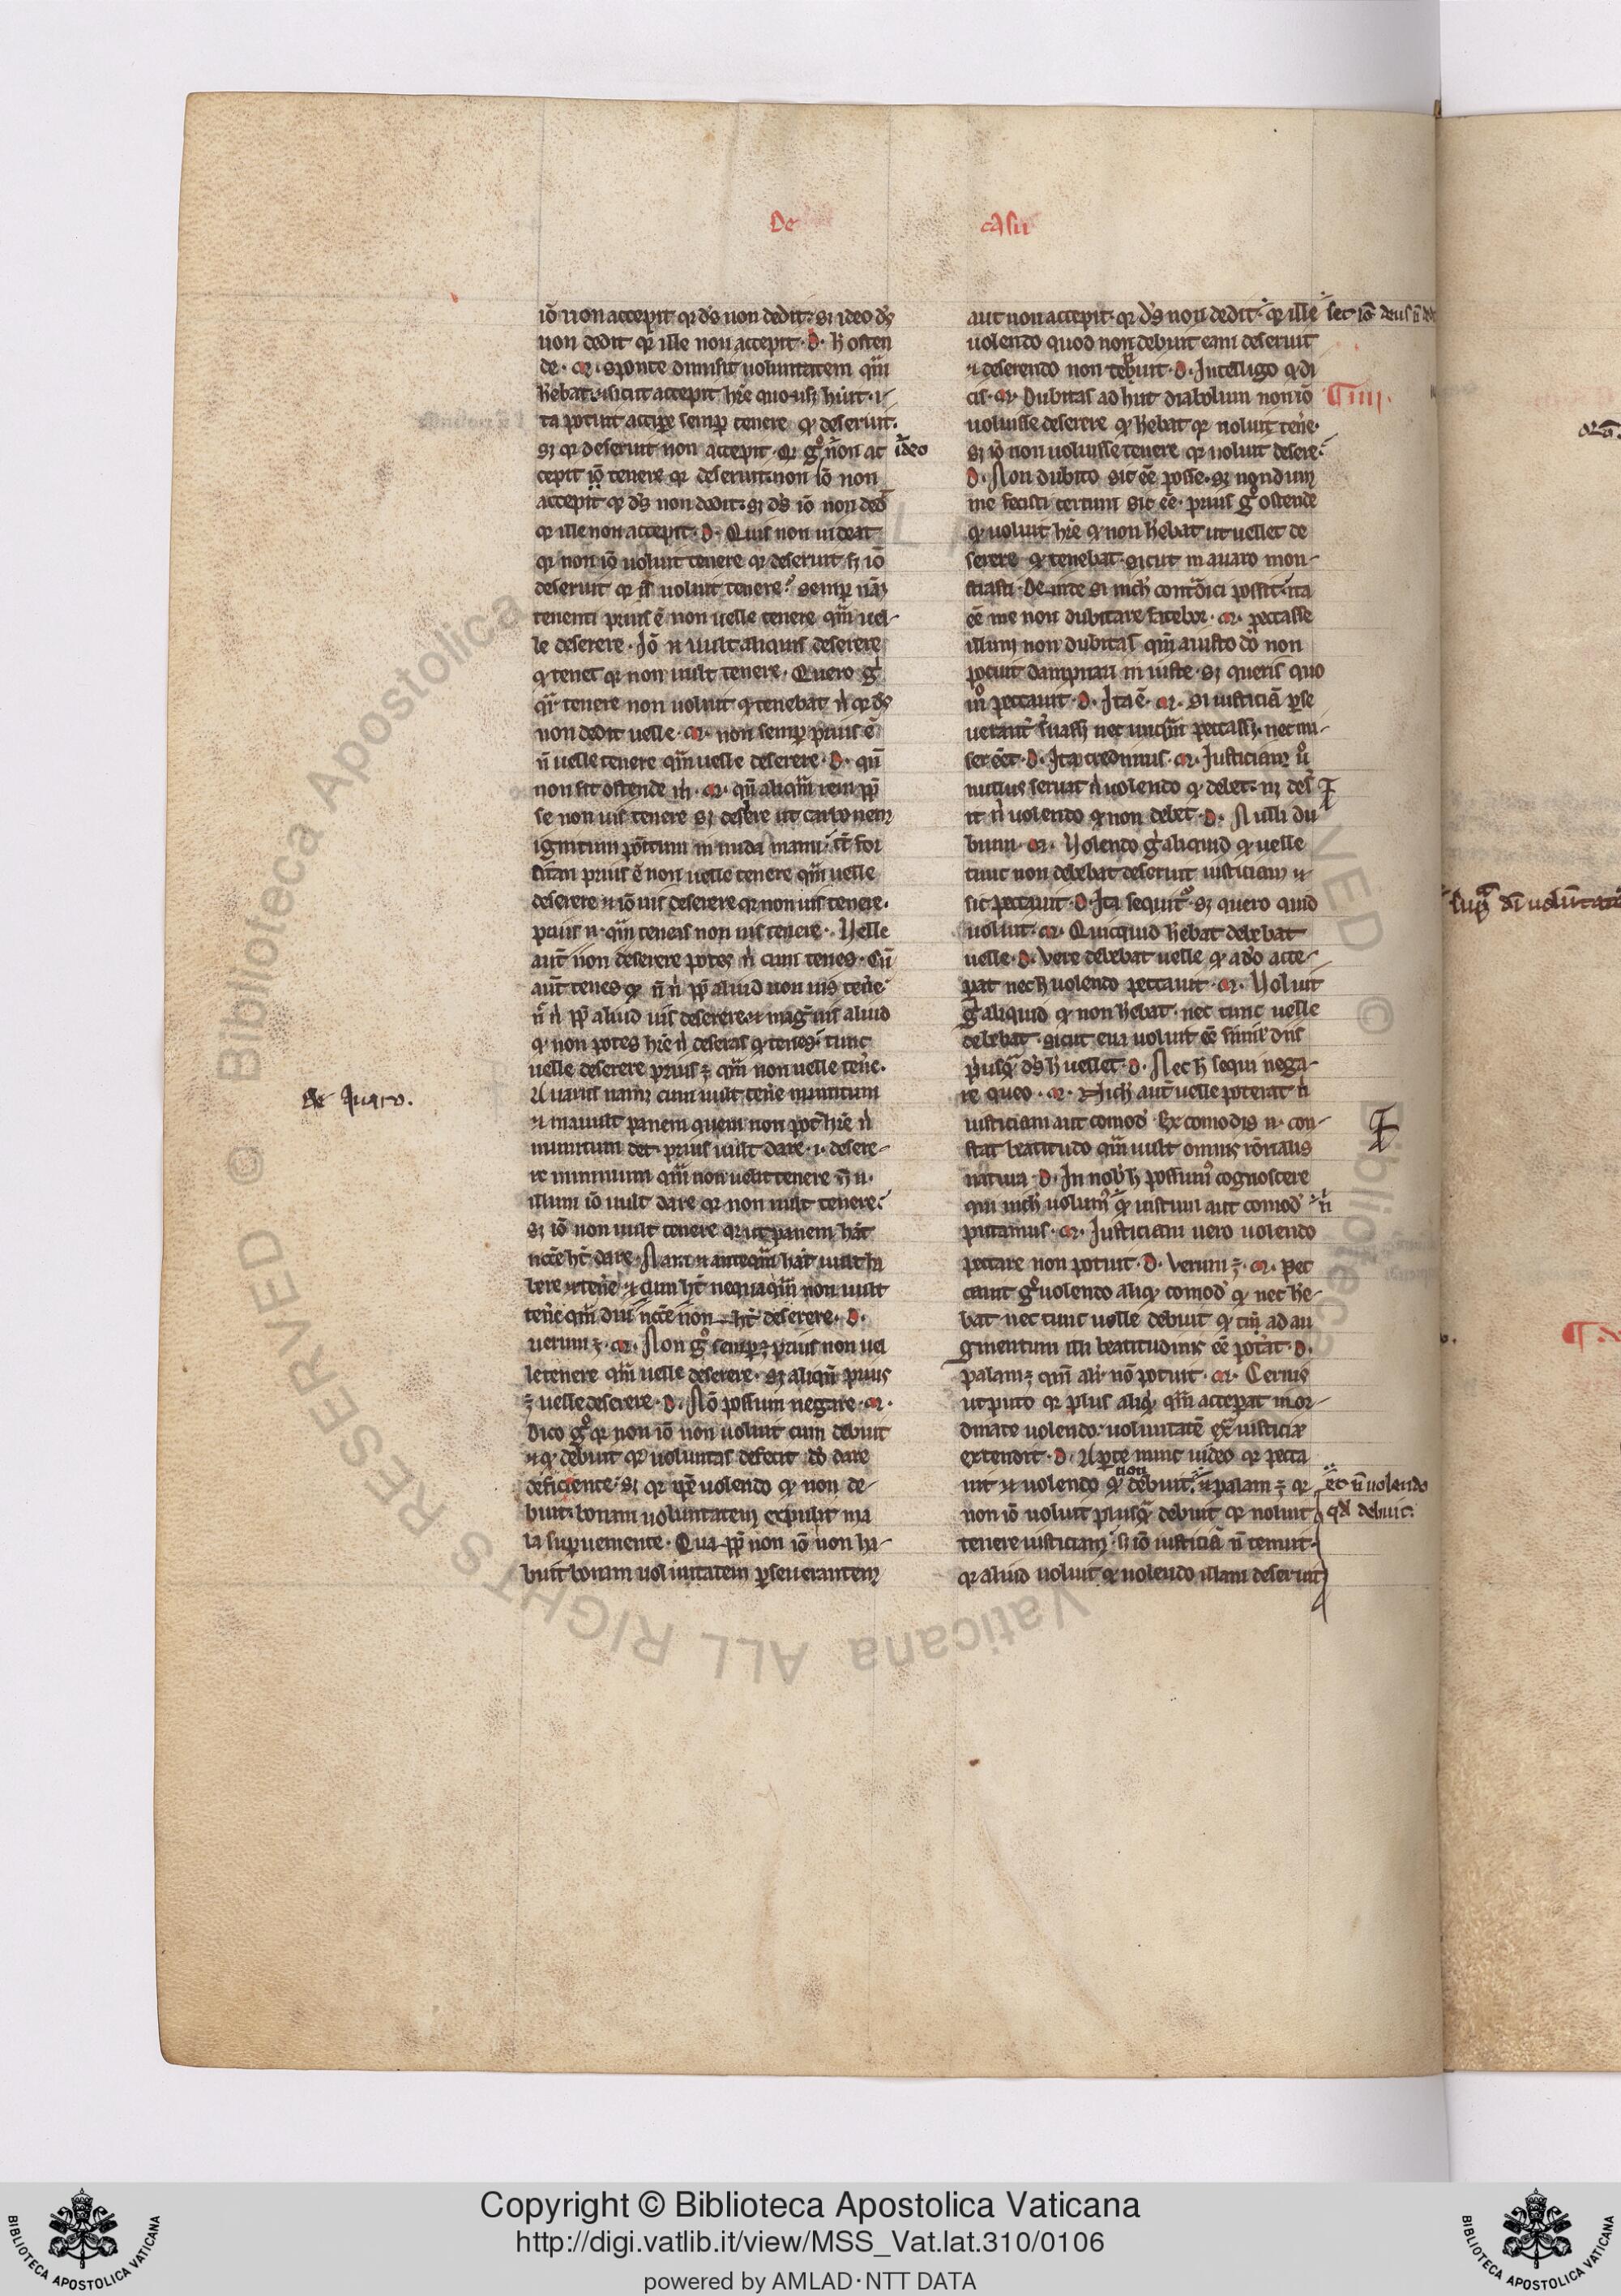 De casu
iō non accepit qr ds̄ non dedit· sꝫ ideo ds̄
non dedit qr ille non accepit· D· h̄ osten
de· M· sponte dimisit uoluntatem quā
h̄ebat· ⁊ sicut accepit hr̄e quousqꝫ huit· i-
ta potuit accipe semp tenere qđ deseruit·
sꝫ qr deseruit non accepit· Qr gͦ non ac
ideo
cepit iō tenere qr deseruit· non iō non
accepit qr ds̄ non dedit· sꝫ ds̄ iō non ded̄
qr ille non accepit· D· Quis non uideat
qr non iō uoluit tenere qr deseruit sꝫ iō
deseruit qr n̄ uoluit tenere? semp nāꝫ
tenenti prius ē non uelle tenere qm̄ uel-
le deserere· Iō n̄ uult aliquis deserere
qđ tenet qr non uult tenere· Quero gͦ
qr̄ tenere non uoluit qđ tenebat n̄ qr ds̄
non dedit uelle· M· non semp prius ē
n̄ uelle tenere qm̄ uelle deserere· D· qn̄
non sit ostende m̄· M· qn̄ aliqm̄ rem pp̄
se non uis tenere sꝫ deserere ut carbonem
ignitum positum in nuda manu· tc̄ for
sitan prius ē non uelle tenere qm̄ uelle
deserere ⁊ iō uis deserere qr non uis tenere·
prius n̄· qm̄ teneas non uis tenere· Velle
aut̄ non deserere potes n̄ cum tenes· Cū
aut̄ tenes qđ n̄ n̄ pp̄ aliud non uis ten̄e·
n̄ n̄ pp̄ aliud uis deserere· ⁊ maḡ uis aliud
qđ non potes hr̄e n̄ deseras qđ tenes· tunc
uelle deserere prius ꝫ qm̄ non uelle ten̄e·
Auarus namꝫ cum uult ten̄e nummum
⁊ mauult panem quem non pot̄ hr̄e n̄
nummum det· prius uult dare· i· desere-
re nummum qm̄ non uelit tenere n̄ n̄·
illum iō uult dare qr non uult tenere·
sꝫ iō non uult tenere qr ut panem hat̄
ncc̄e ht̄ dare· Nam ⁊ anteqm̄ hat̄ uult ha
bere ⁊ ten̄e· ⁊ cum ht̄ nequaqm̄ non uult
ten̄e qm̄ diu ncc̄e non ht̄ deserere· D·
uerum ꝫ· M· Non gͦ semp ꝫ prius non uel
le tenere qm̄ uelle deserere· sꝫ aliqn̄ prius
ꝫ uelle deserere· D· Nō possum negare· M·
Dico gͦ qr non iō non uoluit cum debuit
⁊ qđ debuit qr uoluntas defecit do dare
deficiente· sꝫ qr ip̄e uolendo qđ non de-
buit· bonam uoluntatem expulit ma
la superueniente· Qua pp̄ non iō non ha-
buit bonam uoluntatem perseuerantem
De Auaro·
aut non accepit· qr ds̄ non dedit· qr ille
sct iō deus n̄
uolendo quod non debuit eam deseruit
⁊ deserendo non tenuit· D· Intelligo qđ di
cis· M· Dubitas adhuc diabolum non iō
¶ IIII·
uoluisse deserere qđ h̄ebat qr noluit ten̄e·
sꝫ iō non uoluisse tenere qr uoluit desere·
D· Non dubito sic ee̅ posse· sꝫ nondum
me fecisti certum sic ee̅· prius gͦ ostende
qđ uoluit hr̄e qđ non h̄ebat ut uellet de
serere qđ tenebat· sicut in auaro mon-
strasti· Deinde si nich̄ contdici possit· ita
ee̅ me non dubitare fatebor· M· peccasse
illum non dubitas qm̄ a iusto do non
potuit dampnari iniuste· sꝫ queris quo
mͦ peccauit· D· Ita ē· M· si iusticiā perse
ueranter seruasset nec unqm̄ peccasset· nec mi-
ser eēt· D· Ita credimus· M· Iusticiam uͦ
nullus seruat n̄ uolendo qđ debet· nꝫ des
it n̄ uolendo qđ non debet· D· Nulli du
bium· M· Uolendo gͦ aliquid qđ uelle
tunc non debebat deseruit iusticiam ⁊
sic peccauit· D· Ita sequit̄· sꝫ quero quid
uoluit· M· Quicquid h̄ebat debebat
uelle· D· Vere debebat uelle qđ a do acce-
perat nec h̄ uolendo peccauit· M· Uoluit
gͦ aliquid qđ non h̄ebat· nec tunc uelle
debebat· sicut eua uoluit ee̅ similis diis
priusqͣ ds̄ h̄ uellet· D· Nec h̄ sequi nega-
re queo· M· Nich̄ aut̄ uelle poterat n̄
iusticiam aut comod̄· Ex comodis n̄· con-
stat beatitudo qm̄ uult omnis rōnalis
natura· D· In nob̄ h̄ possumꝰ cognoscere
qui nich̄ uolumꝰ qđ iustum aut comod̄
n̄
putamus· M· Iusticiam uero uolendo
peccare non potuit· D· Verum ꝫ· M· Pec
cauit gͦ uolendo aliqđ comod̄ qđ nec he-
bat· nec tunc uelle debuit qđ tm̄ ad au
gmentum illi beatitudinis ee̅ pot̄at· D·
palam ꝫ qm̄ ali̅ nō potuit· M· Cernis
ut puto qr plus aliqđ qm̄ acceperat inor-
dinate uolendo· uoluntatē ext̄ iusticiā
extendit· D· Aperte nunc uideo qr pecca
uit ⁊ uolendo qđ non debuit· n̄ palam ꝫ qr
et n̄ uolendo
qđ debuit·
non iō uoluit plusqͣ debuit qr noluit
tenere iusticiam· s; iō iusticiā n̄ tenuit·
qr aliud uoluit qđ uolendo illam deseruit
Copyright © Biblioteca Apostolica Vaticana
http://digi.vatlib.it/view/MSS_Vat.lat.310/0106
powered by AMLAD·NTT DATA
BIBLIOTECA APOSTOLICA VATICANA
BIBLIOTECA APOSTOLICA VATICANA